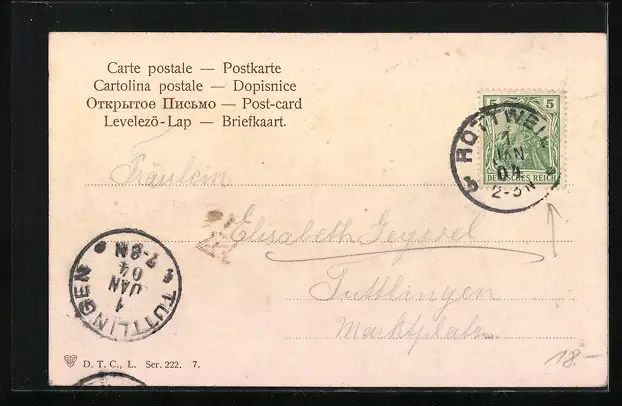 Carte postale — Postkarte
Cartolina postale — Dopisnice
Открытое Письмо — Post-card
Levelező-Lap — Briefkaart.
5 5
DEUTSCHES REICH
ROTTWEIL
1
JAN
04
2-3N
Fräulein
Elisabeth
Tuttlingen
Marktplatz
TUTTLINGEN
1
JAN
04
7-8N
D. T. C., L. Ser. 222. 7.
18.-